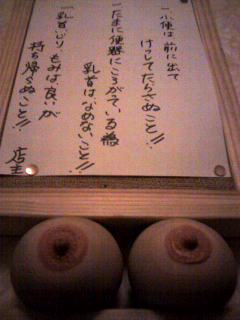 一 小便は前に出て
けっしてたらさぬこと!!
一 たまに便器にころがっている為
乳首はなめないこと!!
一 乳首いじり、もみは良いが
持ち帰らぬこと!!
店主